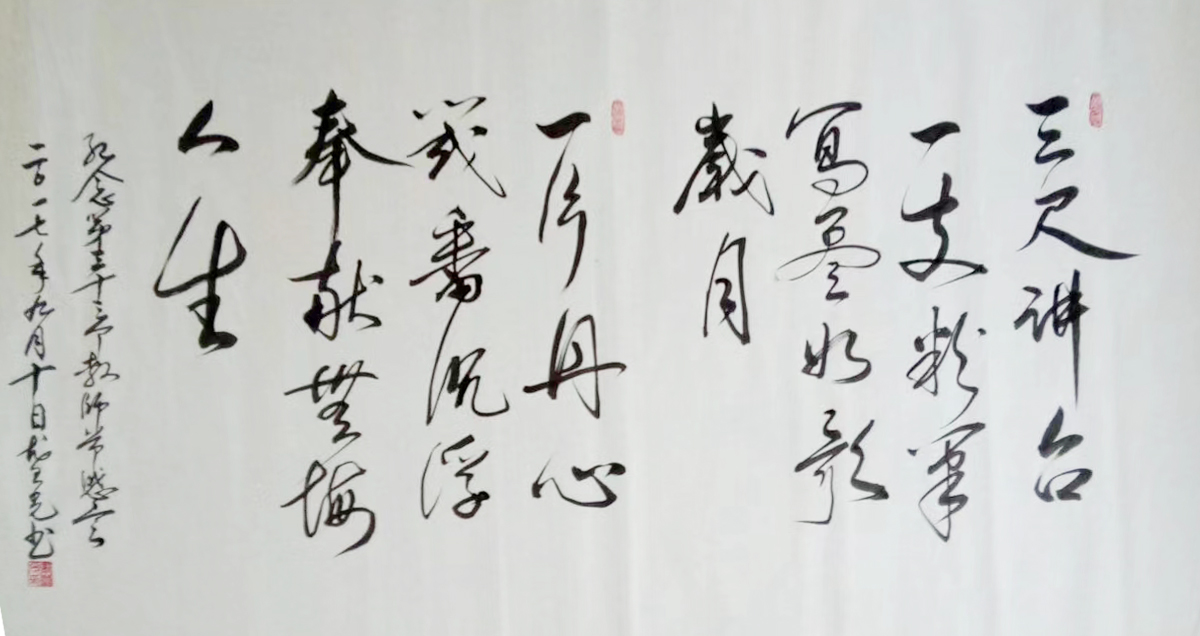 三尺讲台
一支粉笔
寫尽如歌
歲月
一片丹心
幾番沉浮
奉献無悔
人生
纪念第三十三个教师节感言
二〇一七年九月十日 书